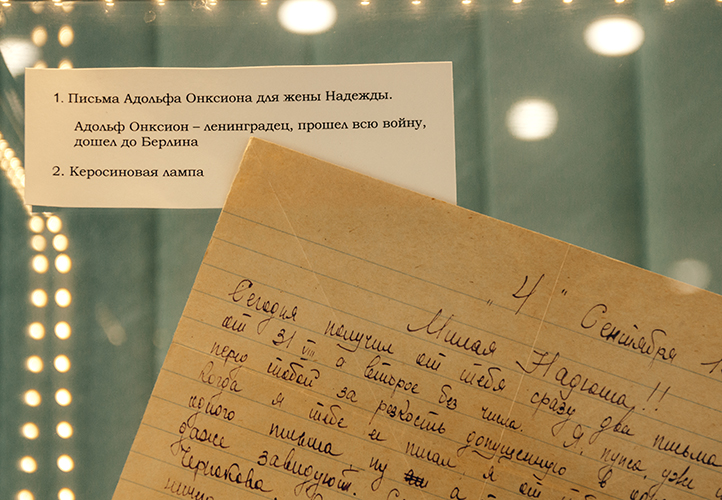 1. Письма Адольфа Онксиона для жены Надежды.
Адольф Онксион – ленинградец, прошел всю войну,
дошел до Берлина
2. Керосиновая лампа
"4" Сентября 1
Милая Надюша!!
Сегодня получил от тебя сразу два письма
от 31 VIII а второе без числа. Я, пупа, уже
перед тобой за резкость допущенную в
Когда я тебе её писал я от
одного письма ну а
даже завидуют.
Чернакова.